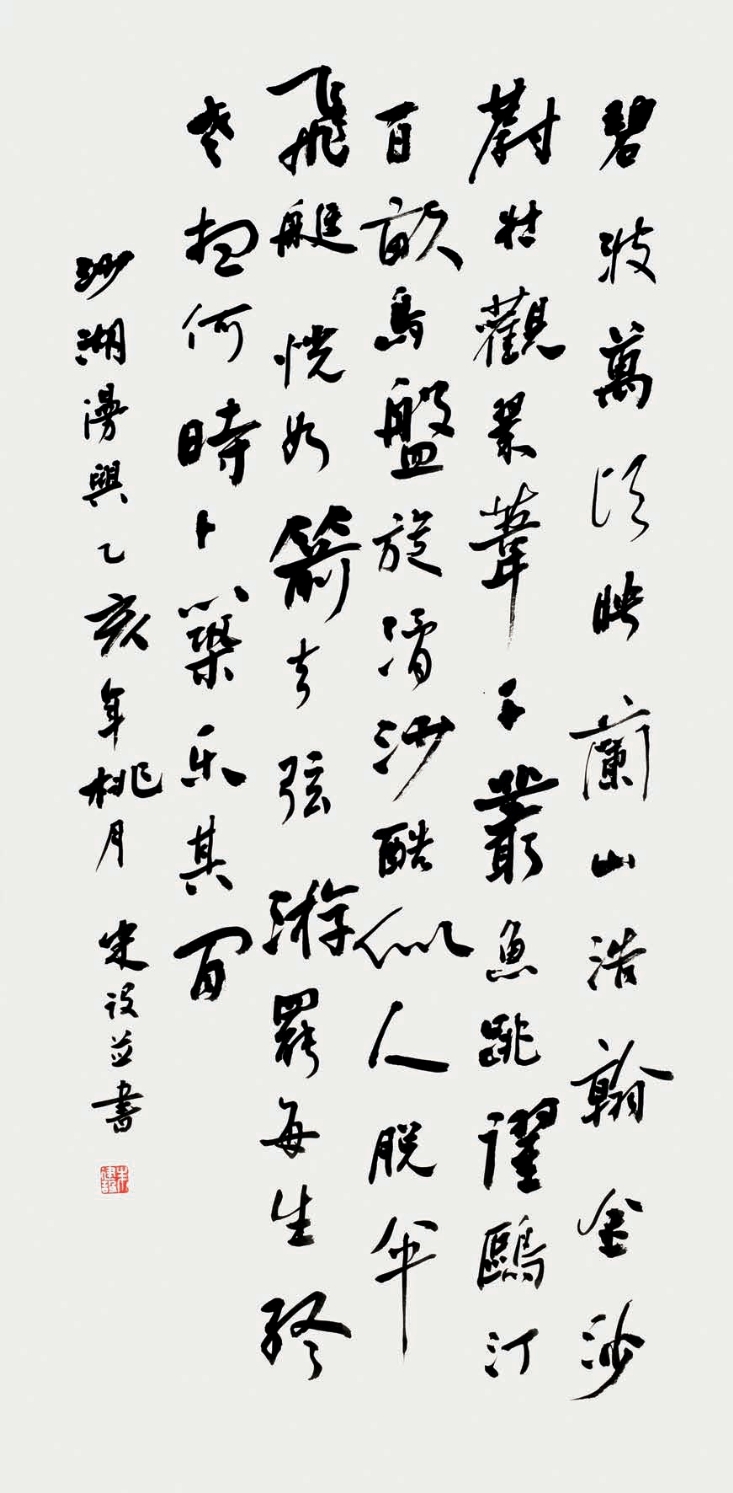 碧波萬頃映蘭山浩翰金沙
蔚壯觀翠葦千叢魚跳躍鷗汀
百畝鳥盤旋滑沙酷似人脫伞
飛艇恍如箭去弦游罷每生終
老想何時卜築乐其间
沙湖漫興乙亥年桃月 建设並書